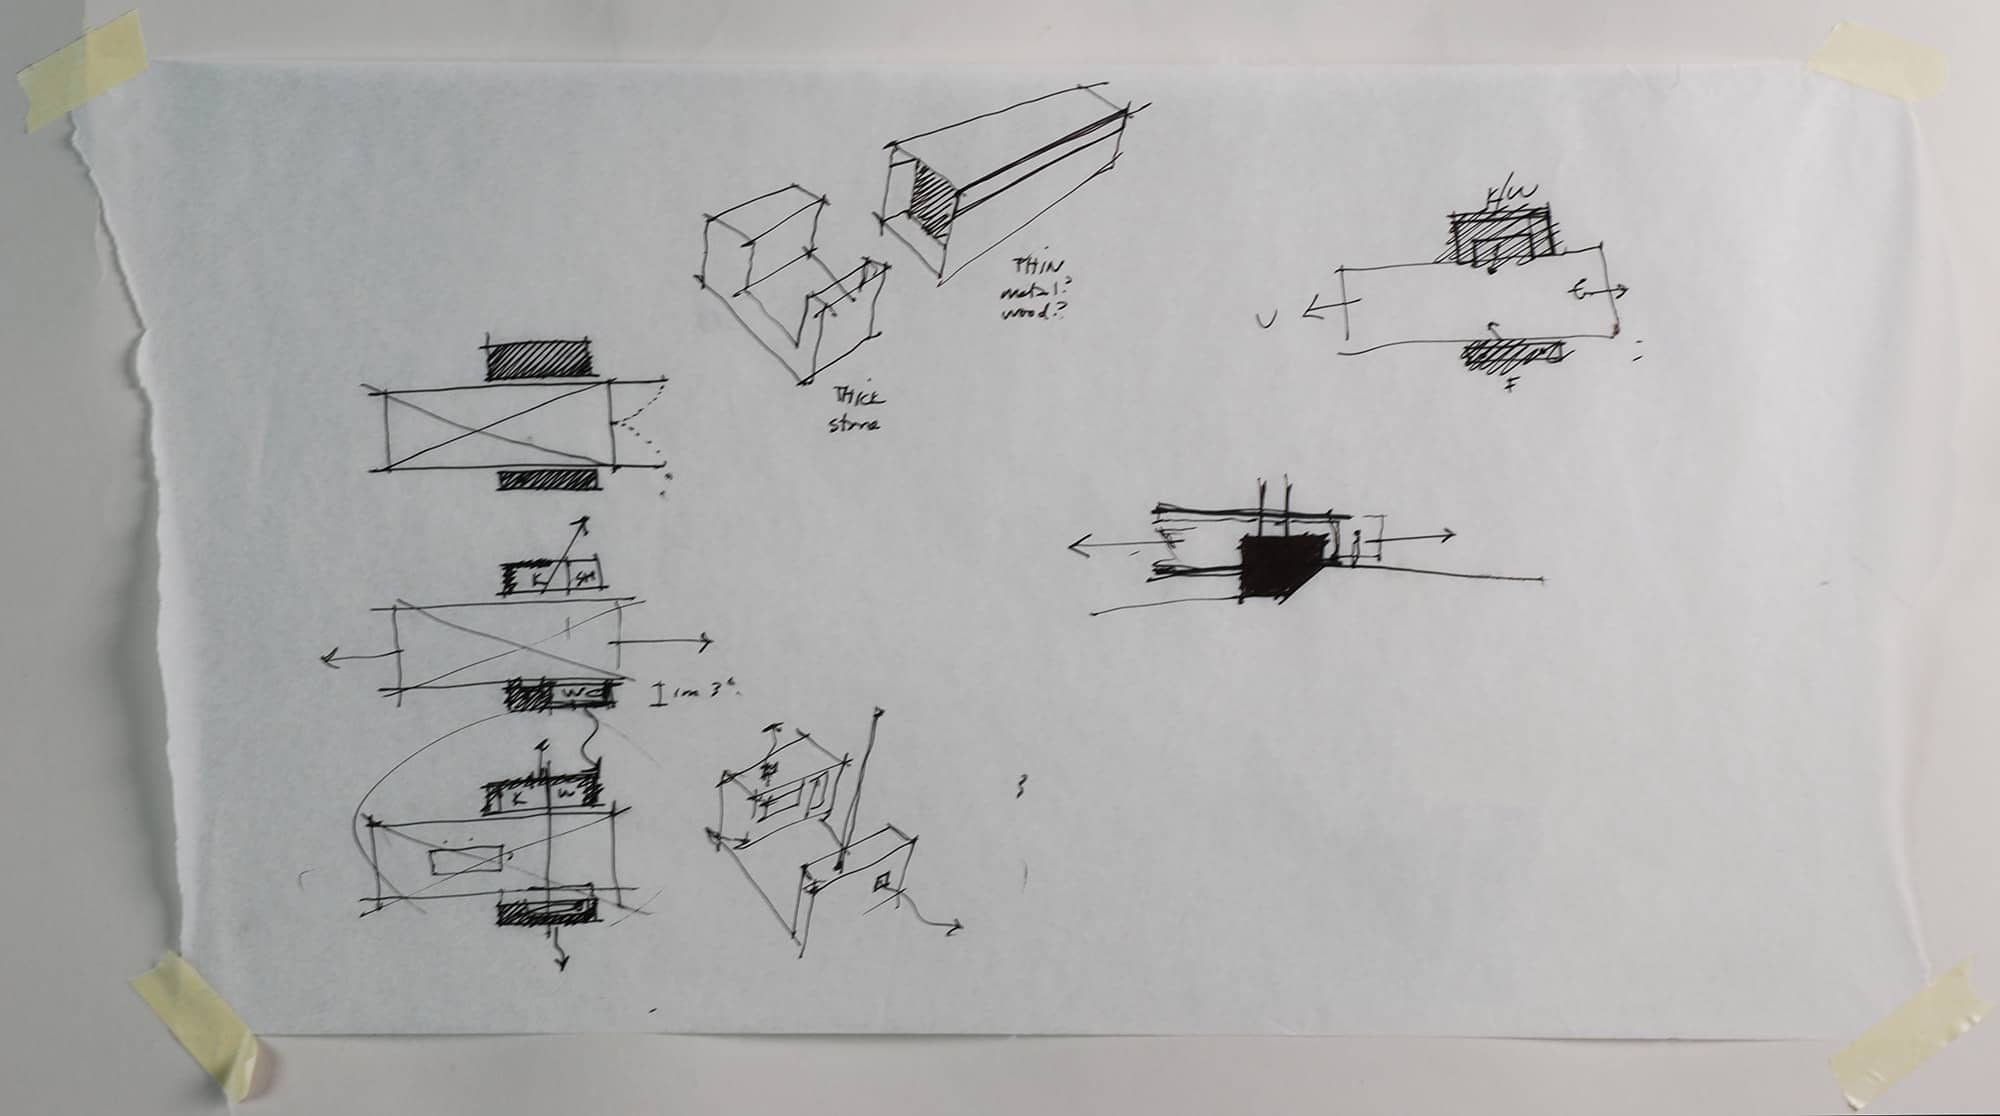 THIN
metal?
wood?
THICK
stone
K/W
E
U
F
K SH
WC
K W